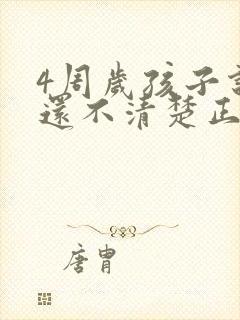 4周歲孩子說
還不清楚正
唐胄